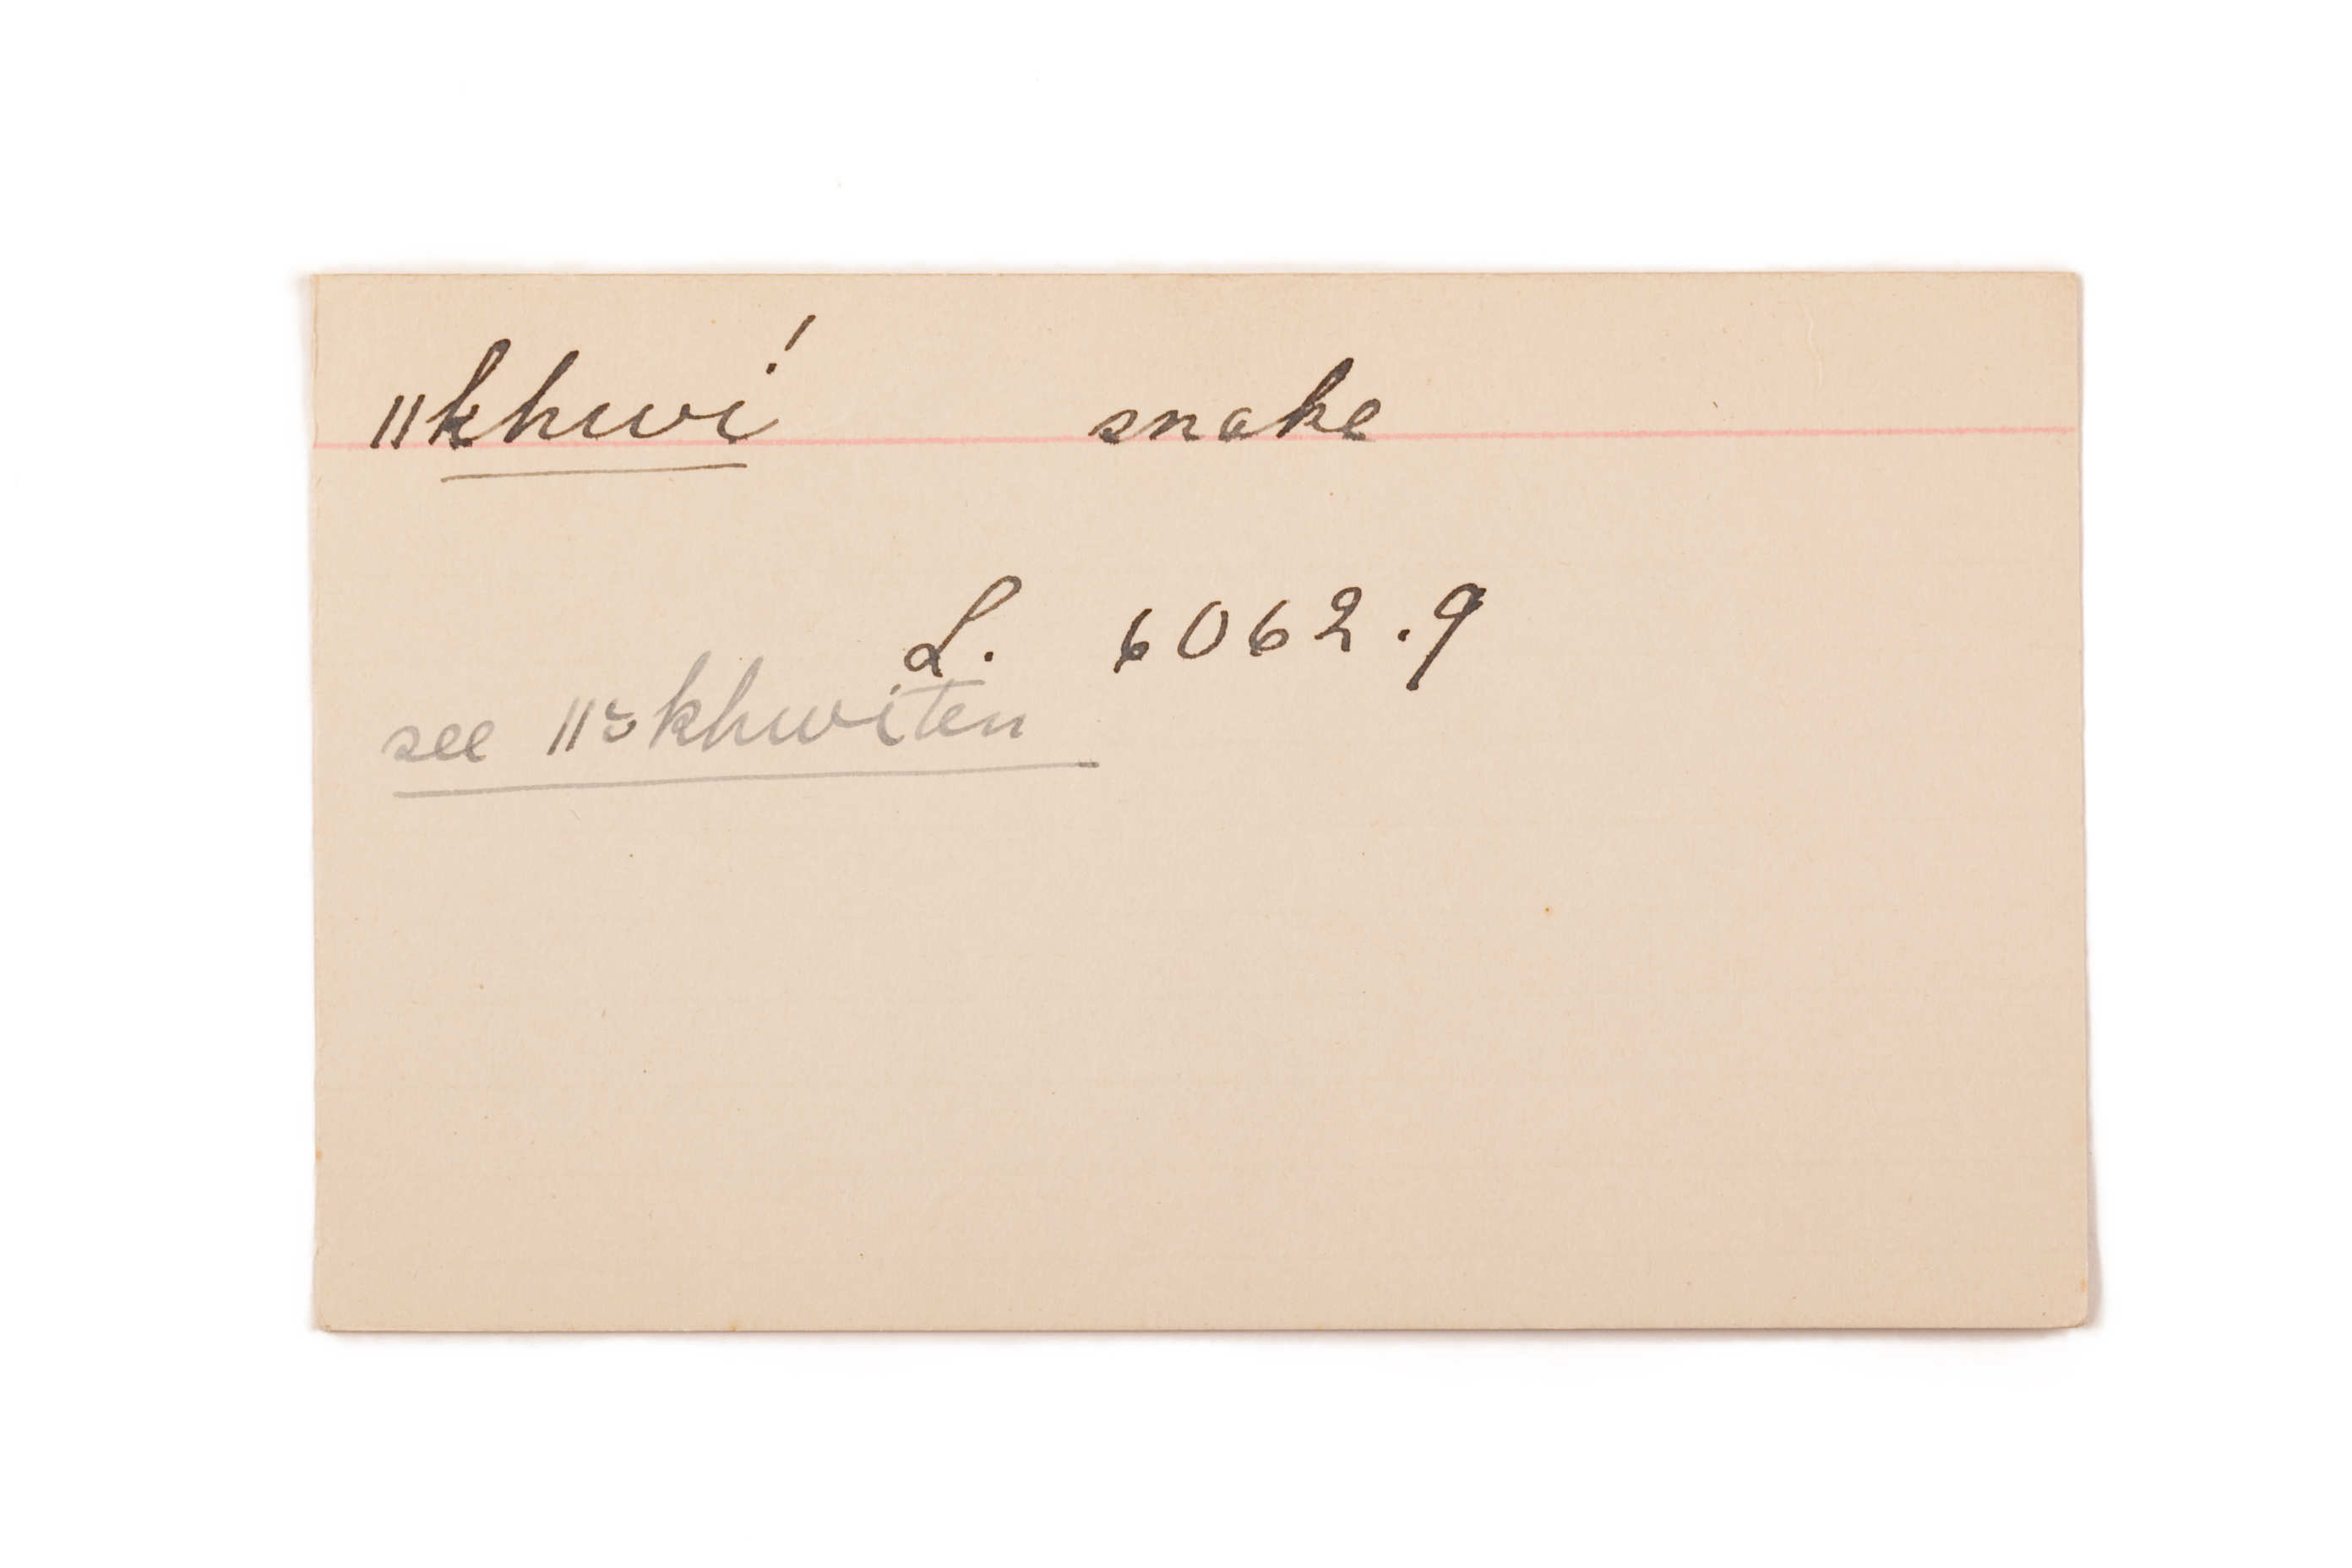 ǁkhwí snake
L. 6062.9
see ǁ˜khwiten